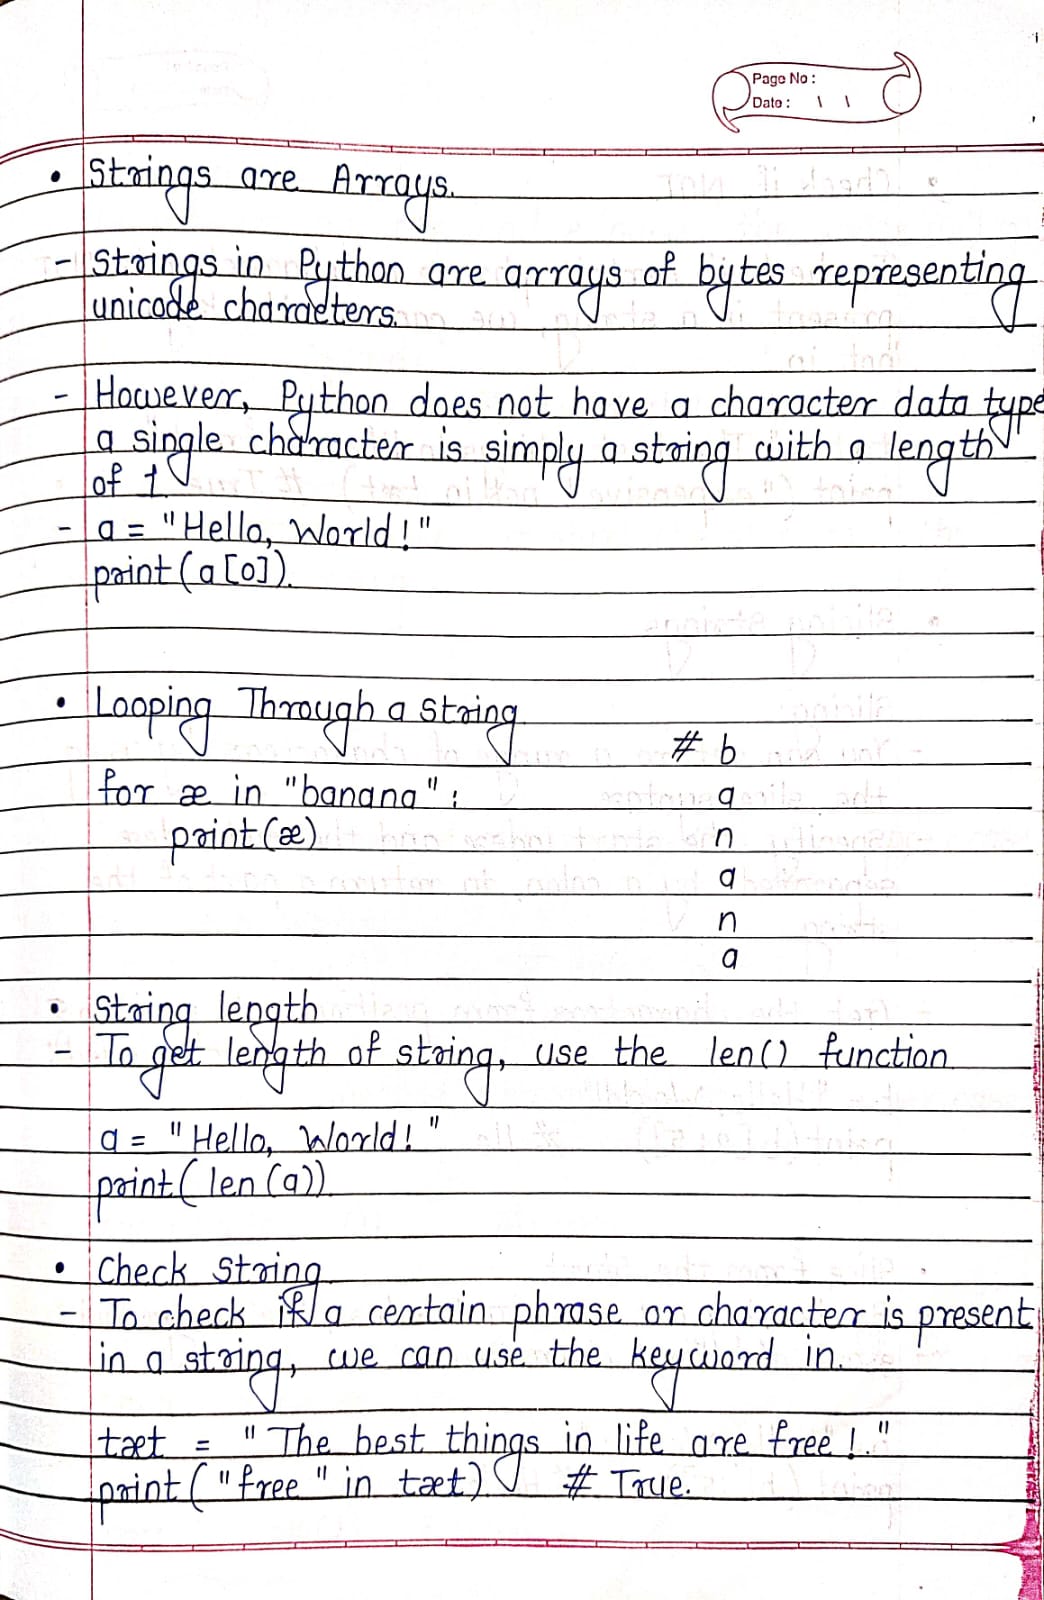 Page No :
Date : \ \
• Strings are Arrays.
- Strings in Python are arrays of bytes representing
unicode characters.
- However, Python does not have a character data type
a single character is simply a string with a length
of 1
- a = "Hello, World!"
print(a[0]).
• Looping Through a string
# b
for x in "banana" :
a
print(x)
n
a
n
a
• String length
- To get length of string, use the len() function
a = "Hello, World!"
print(len(a))
• Check String
- To check if a certain phrase or character is present
in a string, we can use the keyword in.
txt = "The best things in life are free!."
print("free" in txt) # True.